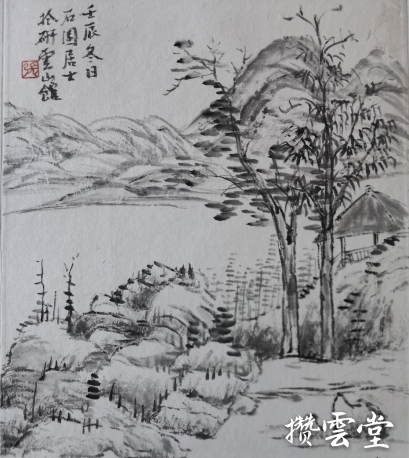 壬辰冬日
石園居士
於研雲山館
攒雲堂